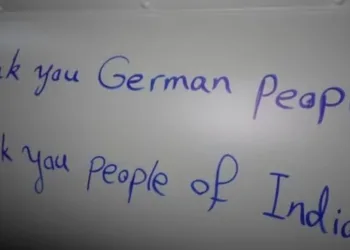 k you German Peop
k you people of India